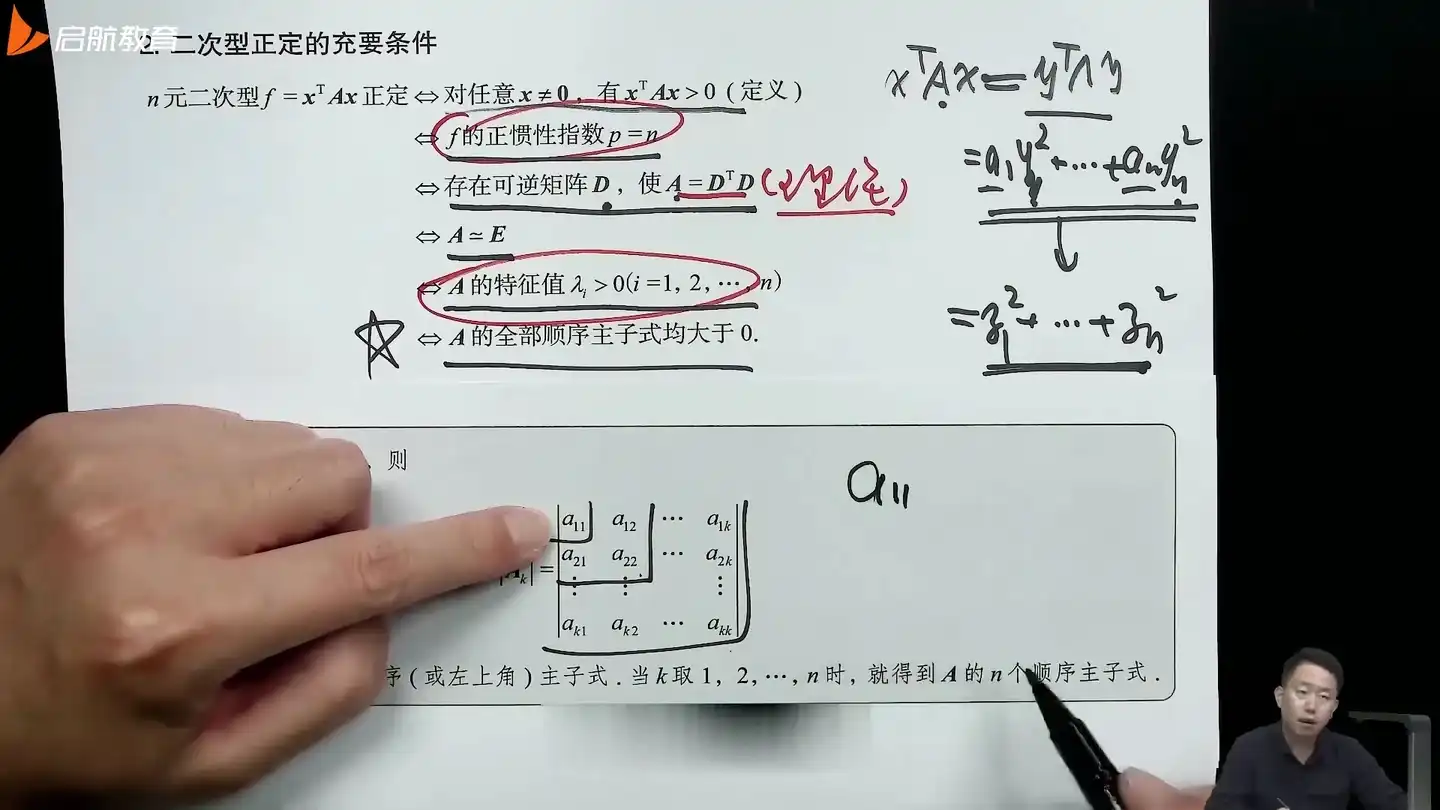 启航教育
2. 二次型正定的充要条件
n元二次型f = xᵀAx正定⇔对任意x≠0, 有xᵀAx>0 (定义)
⇔ f的正惯性指数p=n
⇔ 存在可逆矩阵D, 使A=DᵀD
⇔ A≃E
⇔ A的特征值λᵢ>0(i=1, 2, ⋯, n)
⇔ A的全部顺序主子式均大于0.
xᵀAx=yᵀΛy
=a₁y₁²+⋯+aₙyₙ²
=z₁²+⋯+zₙ²
则
a₁₁
|Aₖ| =
a₁₁ a₁₂ ⋯ a₁ₖ
a₂₁ a₂₂ ⋯ a₂ₖ
⋮ ⋮ ⋮
aₖ₁ aₖ₂ ⋯ aₖₖ
序(或左上角)主子式. 当k取1, 2, ⋯, n时, 就得到A的n个顺序主子式.